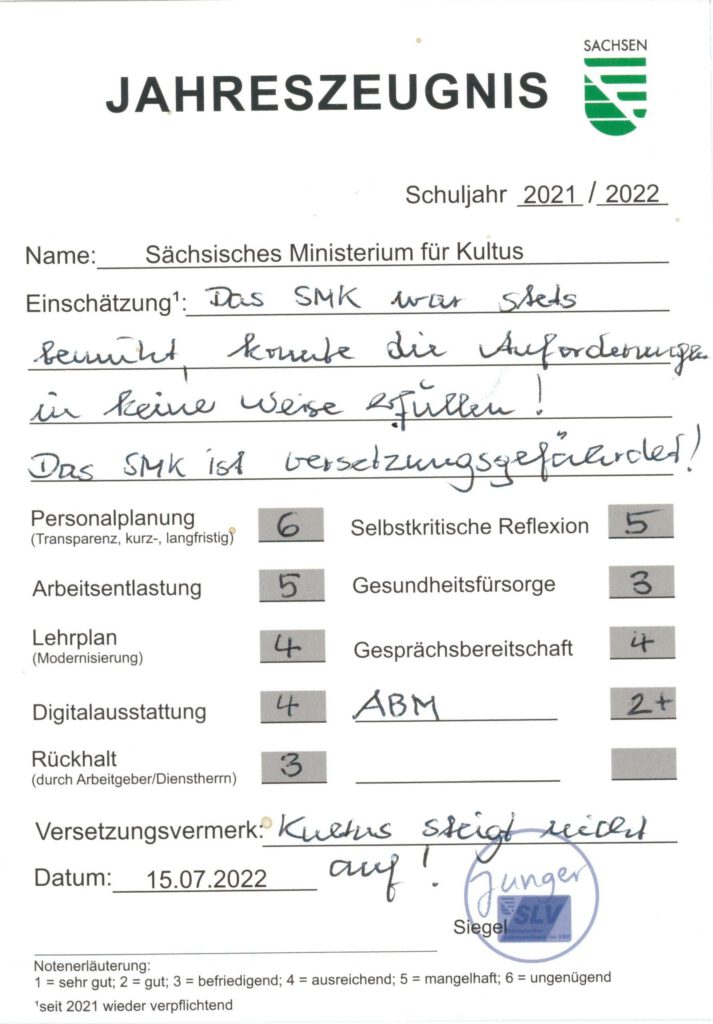 SACHSEN
JAHRESZEUGNIS
Schuljahr 2021 / 2022
Name: Sächsisches Ministerium für Kultus
Einschätzung¹: Das SMK war stets
bemüht, konnte die Anforderungen
in keine Weise erfüllen!
Das SMK ist versetzungsgefährdet!
Personalplanung 6 Selbstkritische Reflexion 5
(Transparenz, kurz-, langfristig)
Arbeitsentlastung 5 Gesundheitsfürsorge 3
Lehrplan 4 Gesprächsbereitschaft 4
(Modernisierung)
Digitalausstattung 4 ABM 2+
Rückhalt 3
(durch Arbeitgeber/Dienstherrn)
Versetzungsvermerk: Kultus steigt nicht
auf!
Datum: 15.07.2022
Junger
Siegel SLV
Notenerläuterung:
1 = sehr gut; 2 = gut; 3 = befriedigend; 4 = ausreichend; 5 = mangelhaft; 6 = ungenügend
¹seit 2021 wieder verpflichtend